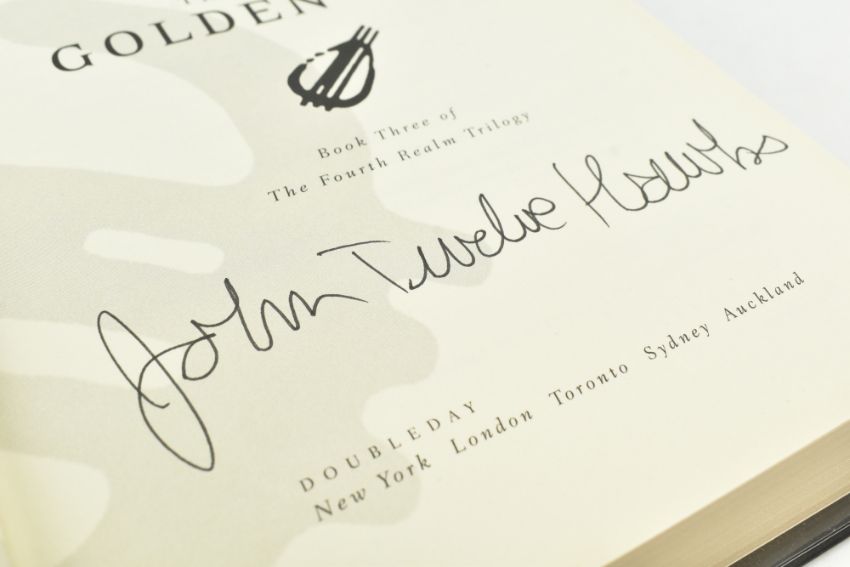 GOLDEN
Book Three of
The Fourth Realm Trilogy
John Twelve Hawks
DOUBLEDAY
New York London Toronto Sydney Auckland